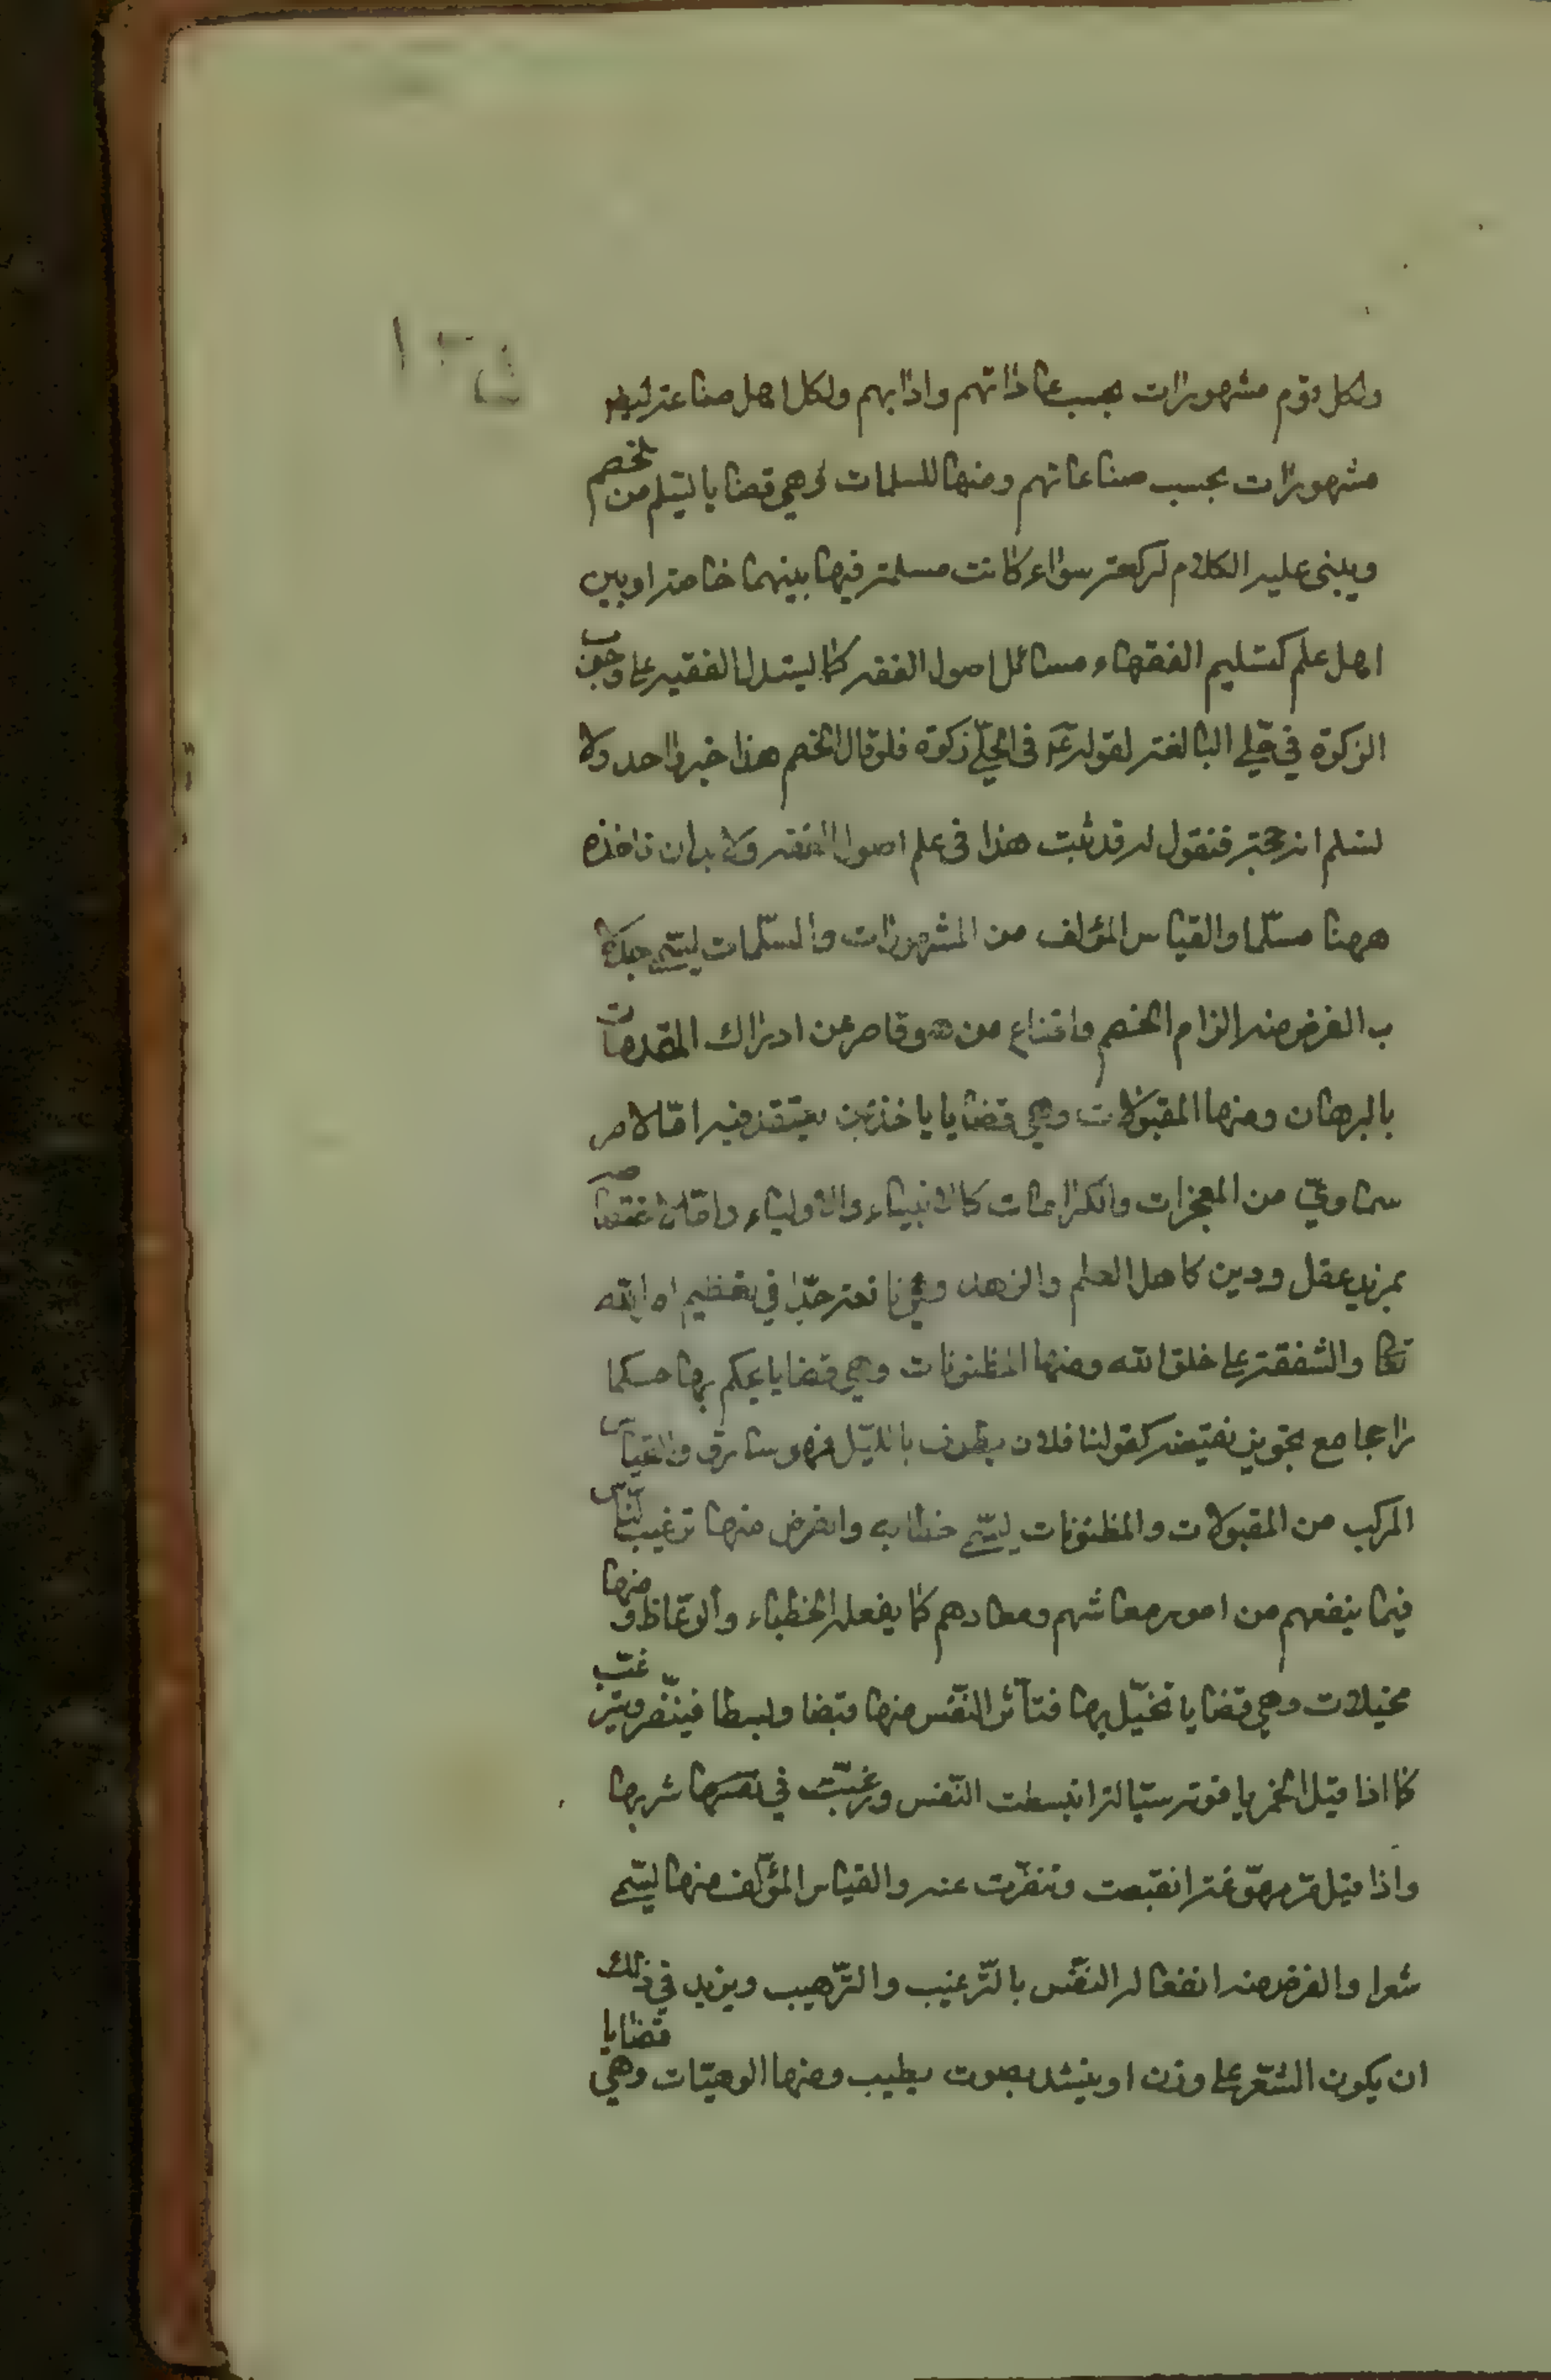 ولكل قوم مشهورات بحسب عاداتهم وادابهم ولكل اهل صناعة
مشهورات بحسب صناعاتهم ومنها المسلمات وهي قضايا يتسلم من الخصم
ويبنى عليه الكلام لدفعه سواء كانت مسلمة فيما بينهما خاصة او بين
اهل علم كتسليم الفقهاء مسائل اصول الفقه كما يستدل الفقيه على وجوب
الزكوة في حلي البالغة لقوله عم في الحلي زكوة فلو قال الخصم هذا خبر واحد ولا
نسلم انه حجة فنقول له قد ثبت هذا في علم اصول الفقه ولا بد ان ناخذه
ههنا مسلما والقياس المؤلف من المشهورات والمسلمات يسمى جدلا
ب الغرض منه الزام الخصم واقناع من هو قاصر عن ادراك المقدمات
بالبرهان ومنها المقبولات وهي قضايا ياخذ ممن يعتقد فيه اما لامر
سماوي من المعجزات والكرامات كالانبياء والاولياء واما
بمزيد عقل ودين كاهل العلم والزهد وهي نافعة جدا في تعظيم امر الله
تعالى والشفقة على خلق الله ومنها المظنونات وهي قضايا يحكم بها حكما
راجحا مع تجويز نقيضه كقولنا فلان يطوف بالليل فهو سارق والقياس
المركب من المقبولات والمظنونات يسمى خطابه والغرض منها ترغيب الناس
فيما ينفعهم من امور معاشهم ومعادهم كما يفعله الخطباء والوعاظ ومنها
مخيلات وهي قضايا تخيل بها فتتأثر النفس منها قبضا وبسطا فينفر ويرغب
كما اذا قيل الخمر ياقوته سيالة انبسطت النفس ورغبت في شربها
واذا قيل مرة مهوغة انقبضت وتنفرت عنه والقياس المؤلف منها يسمى
شعرا والغرض منه انفعال النفس بالترغيب والترهيب ويزيد في ذلك
ان يكون الشعر على وزن او ينشد بصوت يطيب ومنها الوهميات وهي قضايا